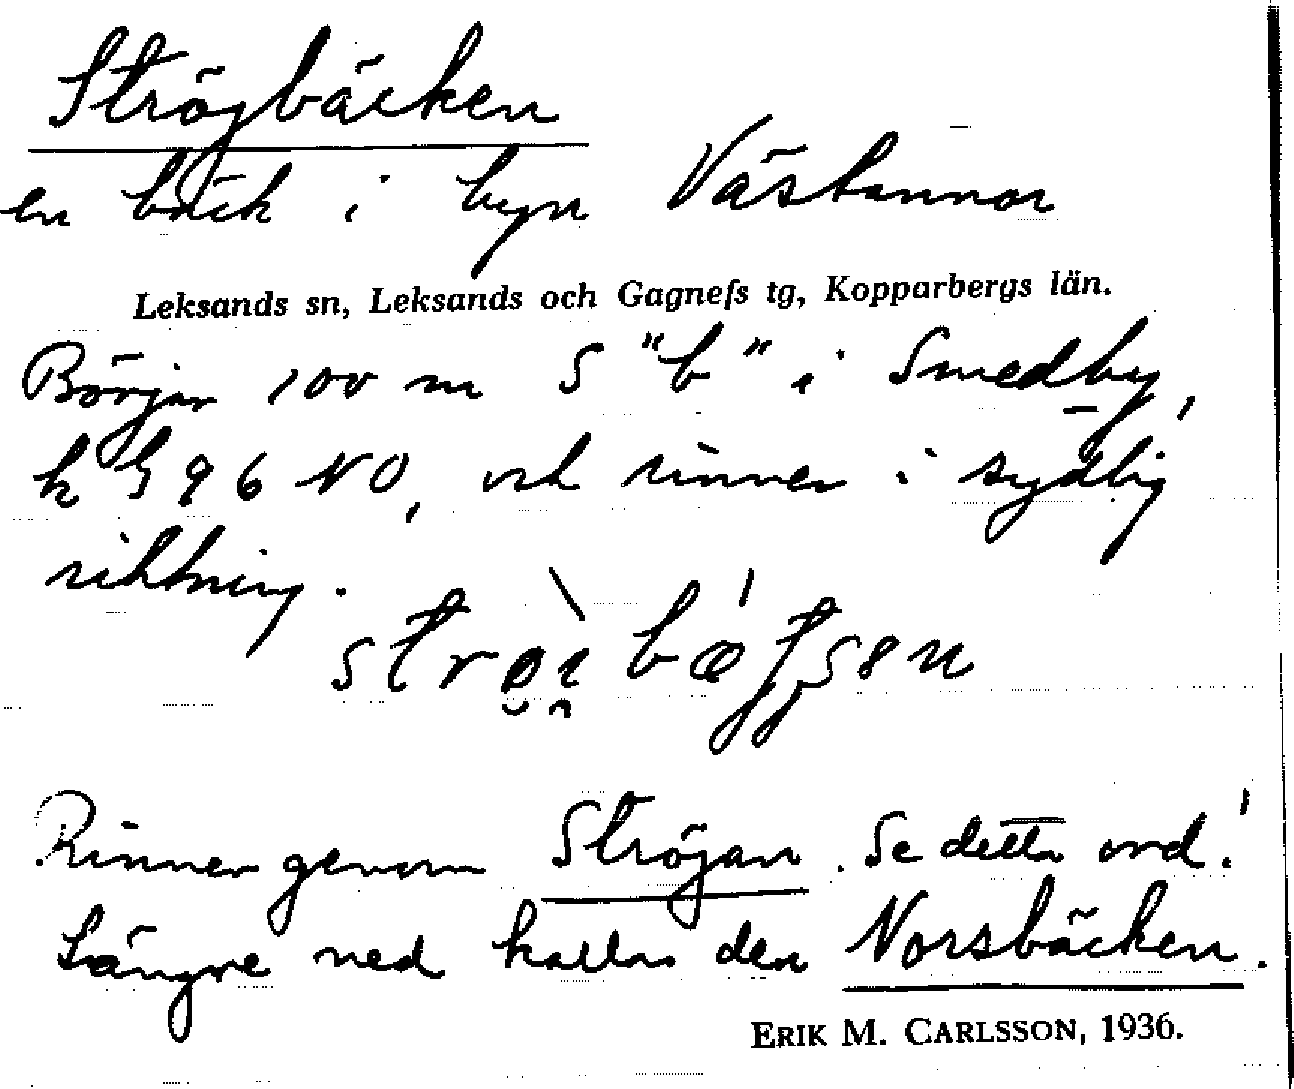 Ströjbäcken
en bäck i byn Västannor
Leksands sn, Leksands och Gagnefs tg, Kopparbergs län.
Börjar 100 m S "b" i Smedby,
k 96 NO, och rinner i sydlig
riktning.
Rinner genom Ströjan. Se detta ord!
Längre ned kallas den Norsbäcken.
ERIK M. CARLSSON, 1936.